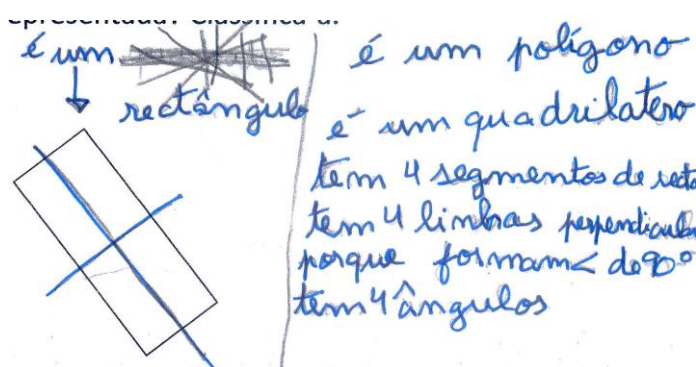 epresentada? Classifica-a.
é um
rectângulo
é um polígono
é um quadrilatero
tem 4 segmentos de recta
tem 4 linhas perpendicular
porque formam < de 90°
tem 4 ângulos